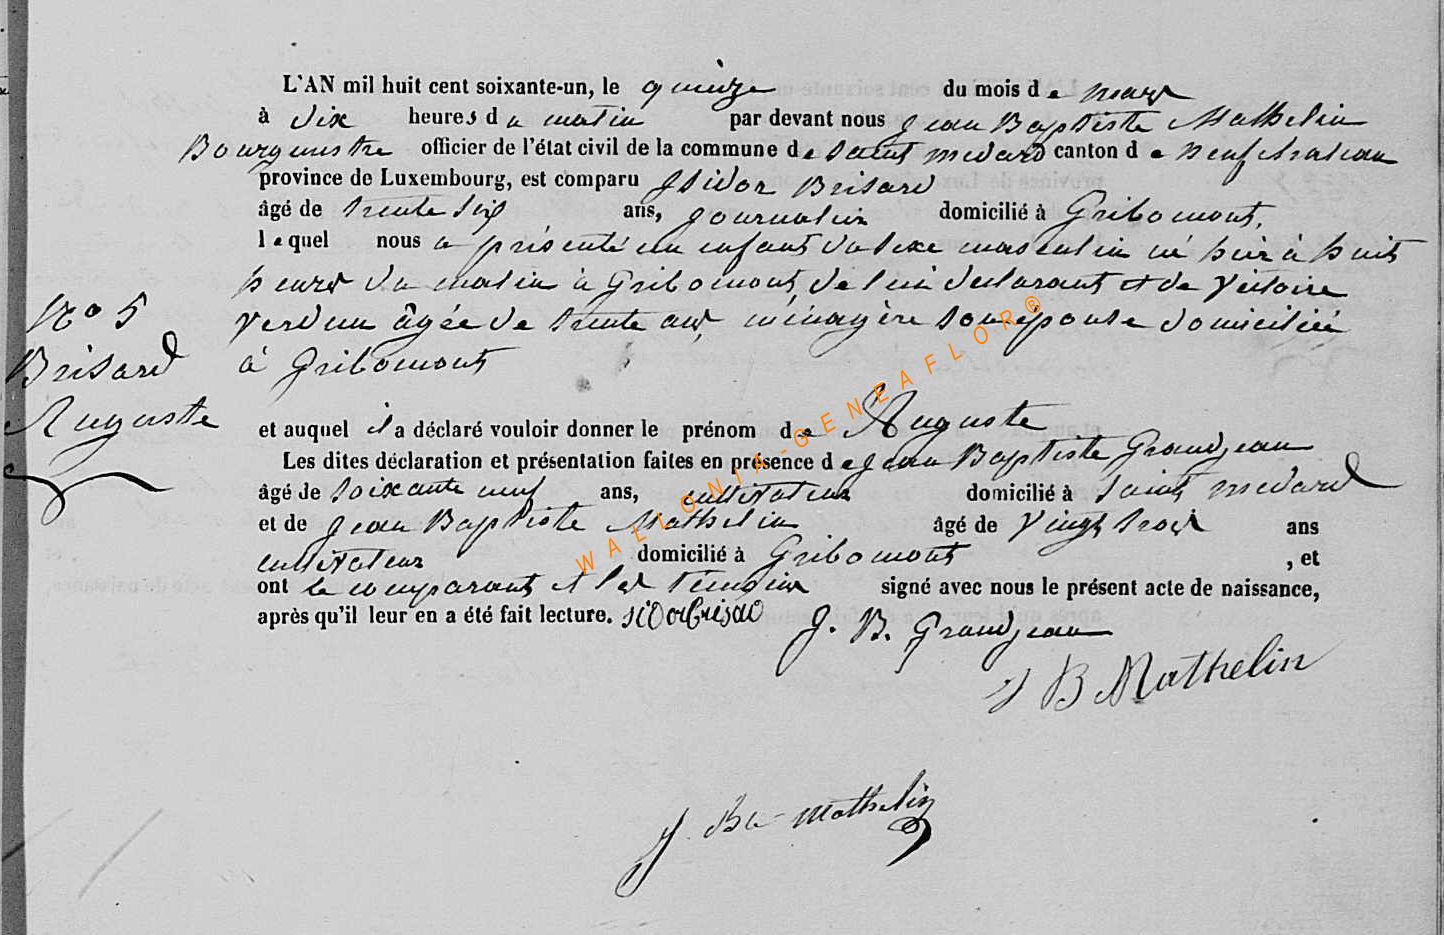 L'AN mil huit cent soixante-un, le quinze du mois de mars
à dix heures du matin par devant nous Jean Baptiste Mathelin
Bourgmestre officier de l'état civil de la commune de Saint medard canton de neufchateau
province de Luxembourg, est comparu Isidor Brisard
âgé de trente six ans, journalier domicilié à Gribomont,
lequel nous a présenté un enfant du sexe masculin né hier à huit
heures du matin à Gribomont, de lui déclarant et de Victoire
Verdun âgée de trente ans, ménagère son épouse domiciliée
à Gribomont
N° 5
Brisard
Auguste
et auquel il a déclaré vouloir donner le prénom de Auguste
Les dites déclaration et présentation faites en présence de Jean Baptiste Grandjean
âgé de soixante neuf ans, cultivateur domicilié à Saint medard
et de Jean Baptiste Mathelin âgé de vingt trois ans
cultivateur domicilié à Gribomont , et
ont le comparant et les témoins signé avec nous le présent acte de naissance,
après qu'il leur en a été fait lecture.
J. B. Grandjean
J B Mathelin
J. Bte Mathelin
WALLONIA-GENEAFLOR®